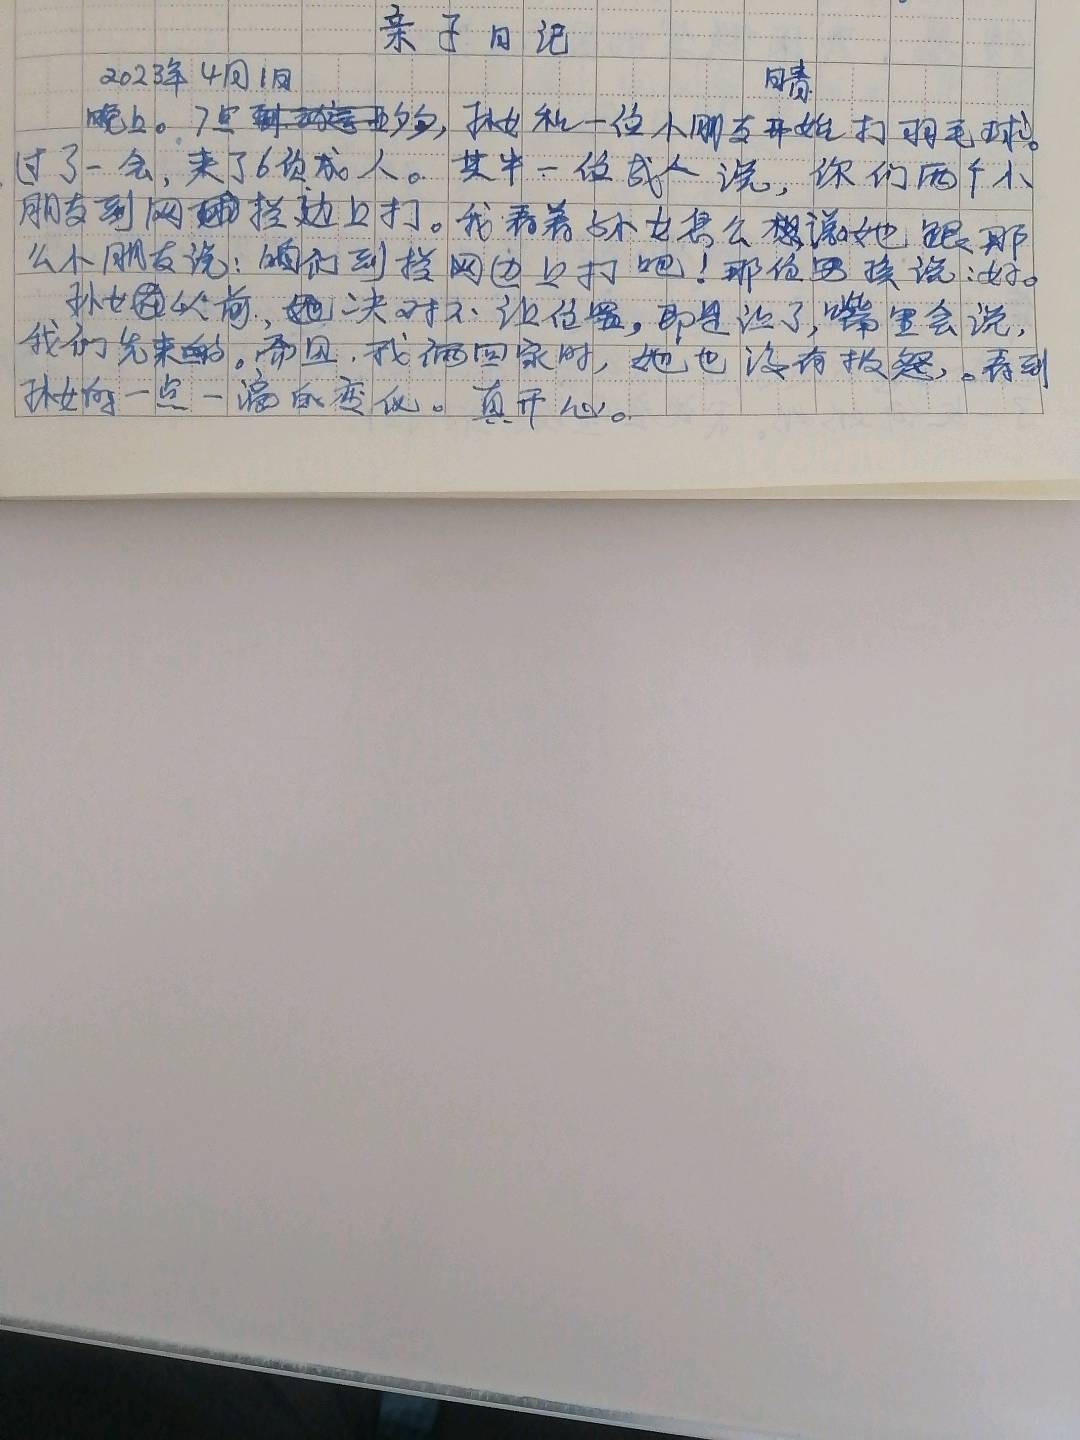 亲子日记
2023年4月1日 晴
晚上。7点多钟,孙女和一位小朋友开始打羽毛球。
过了一会,来了6位成人。其中一位成人说,你们两个小
朋友到网拦边上打。我看着孙女怎么想说她跟那
么小朋友说:咱们到拦网边上打吧!那位男孩说:好。
孙女以前,她决对不让位置,即是让了,嘴里会说,
我们先来的。而且,我俩回家时,她也没有报怨,。看到
孙女的一点一滴的变化。真开心。